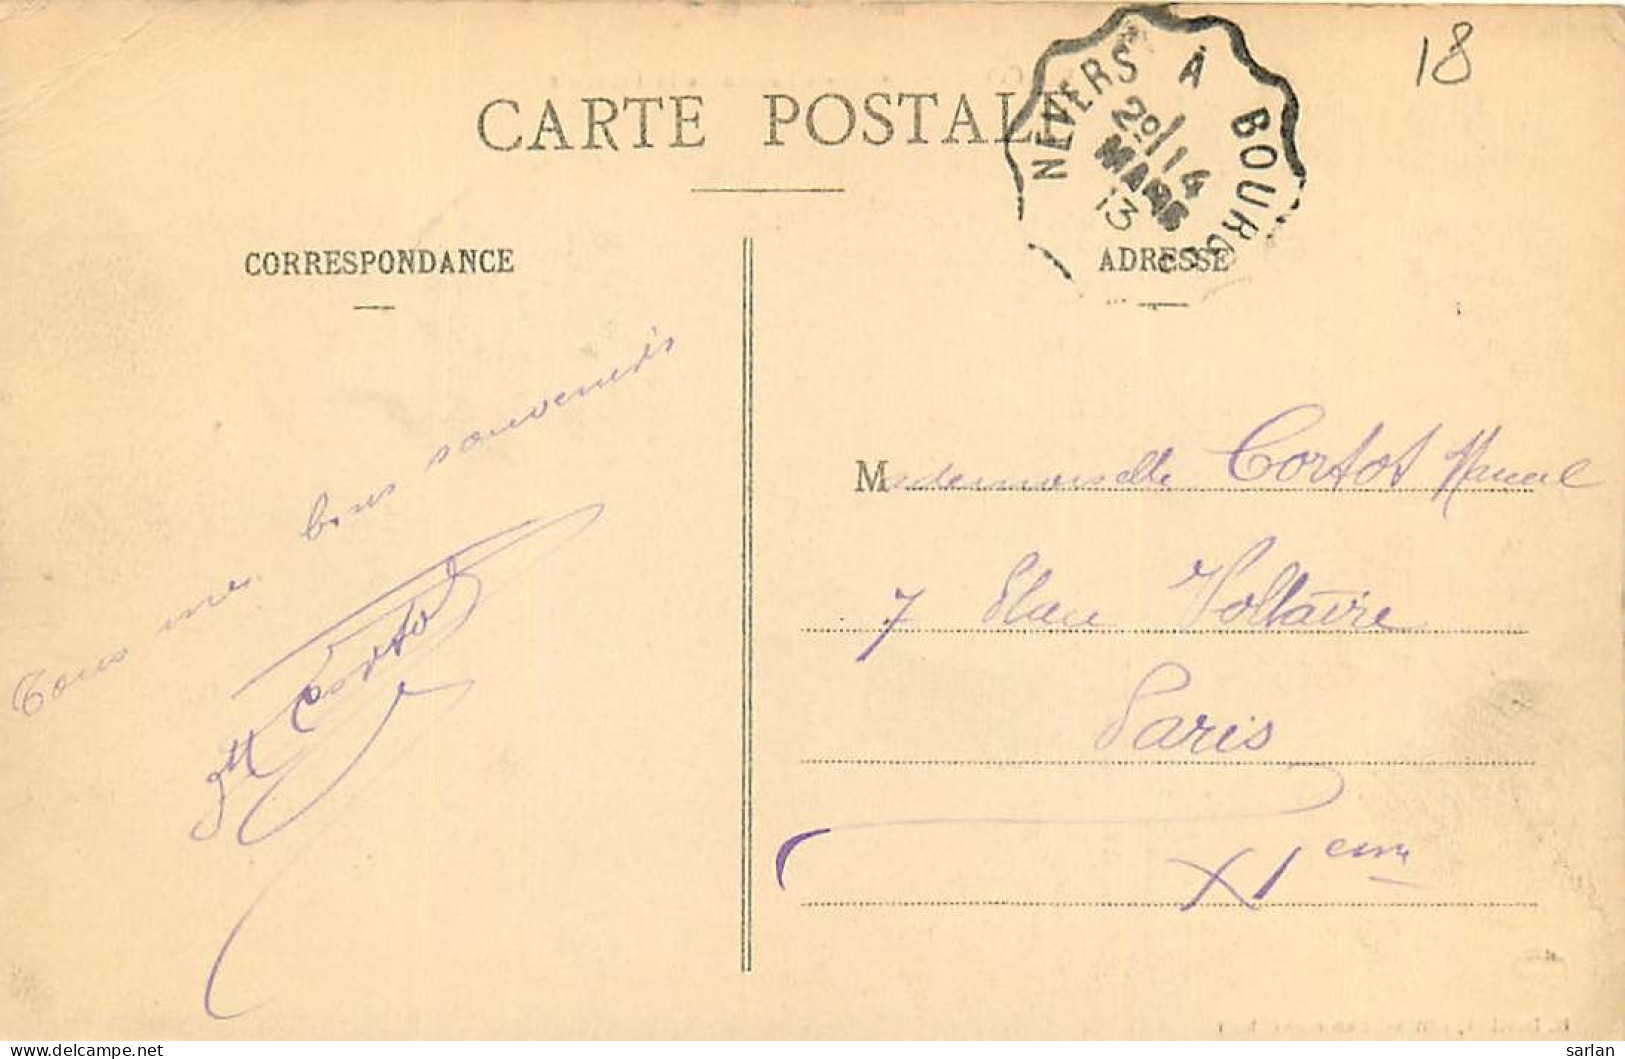 18
CARTE POSTALE
NEVERS À BOURG
2º/14
MARS
13
CORRESPONDANCE
ADRESSE
Tous mes bons souvenirs
M Cortot
Mademoiselle Cortot
7 Place Voltaire
Paris
XIeme
delcampe.net
sarlan